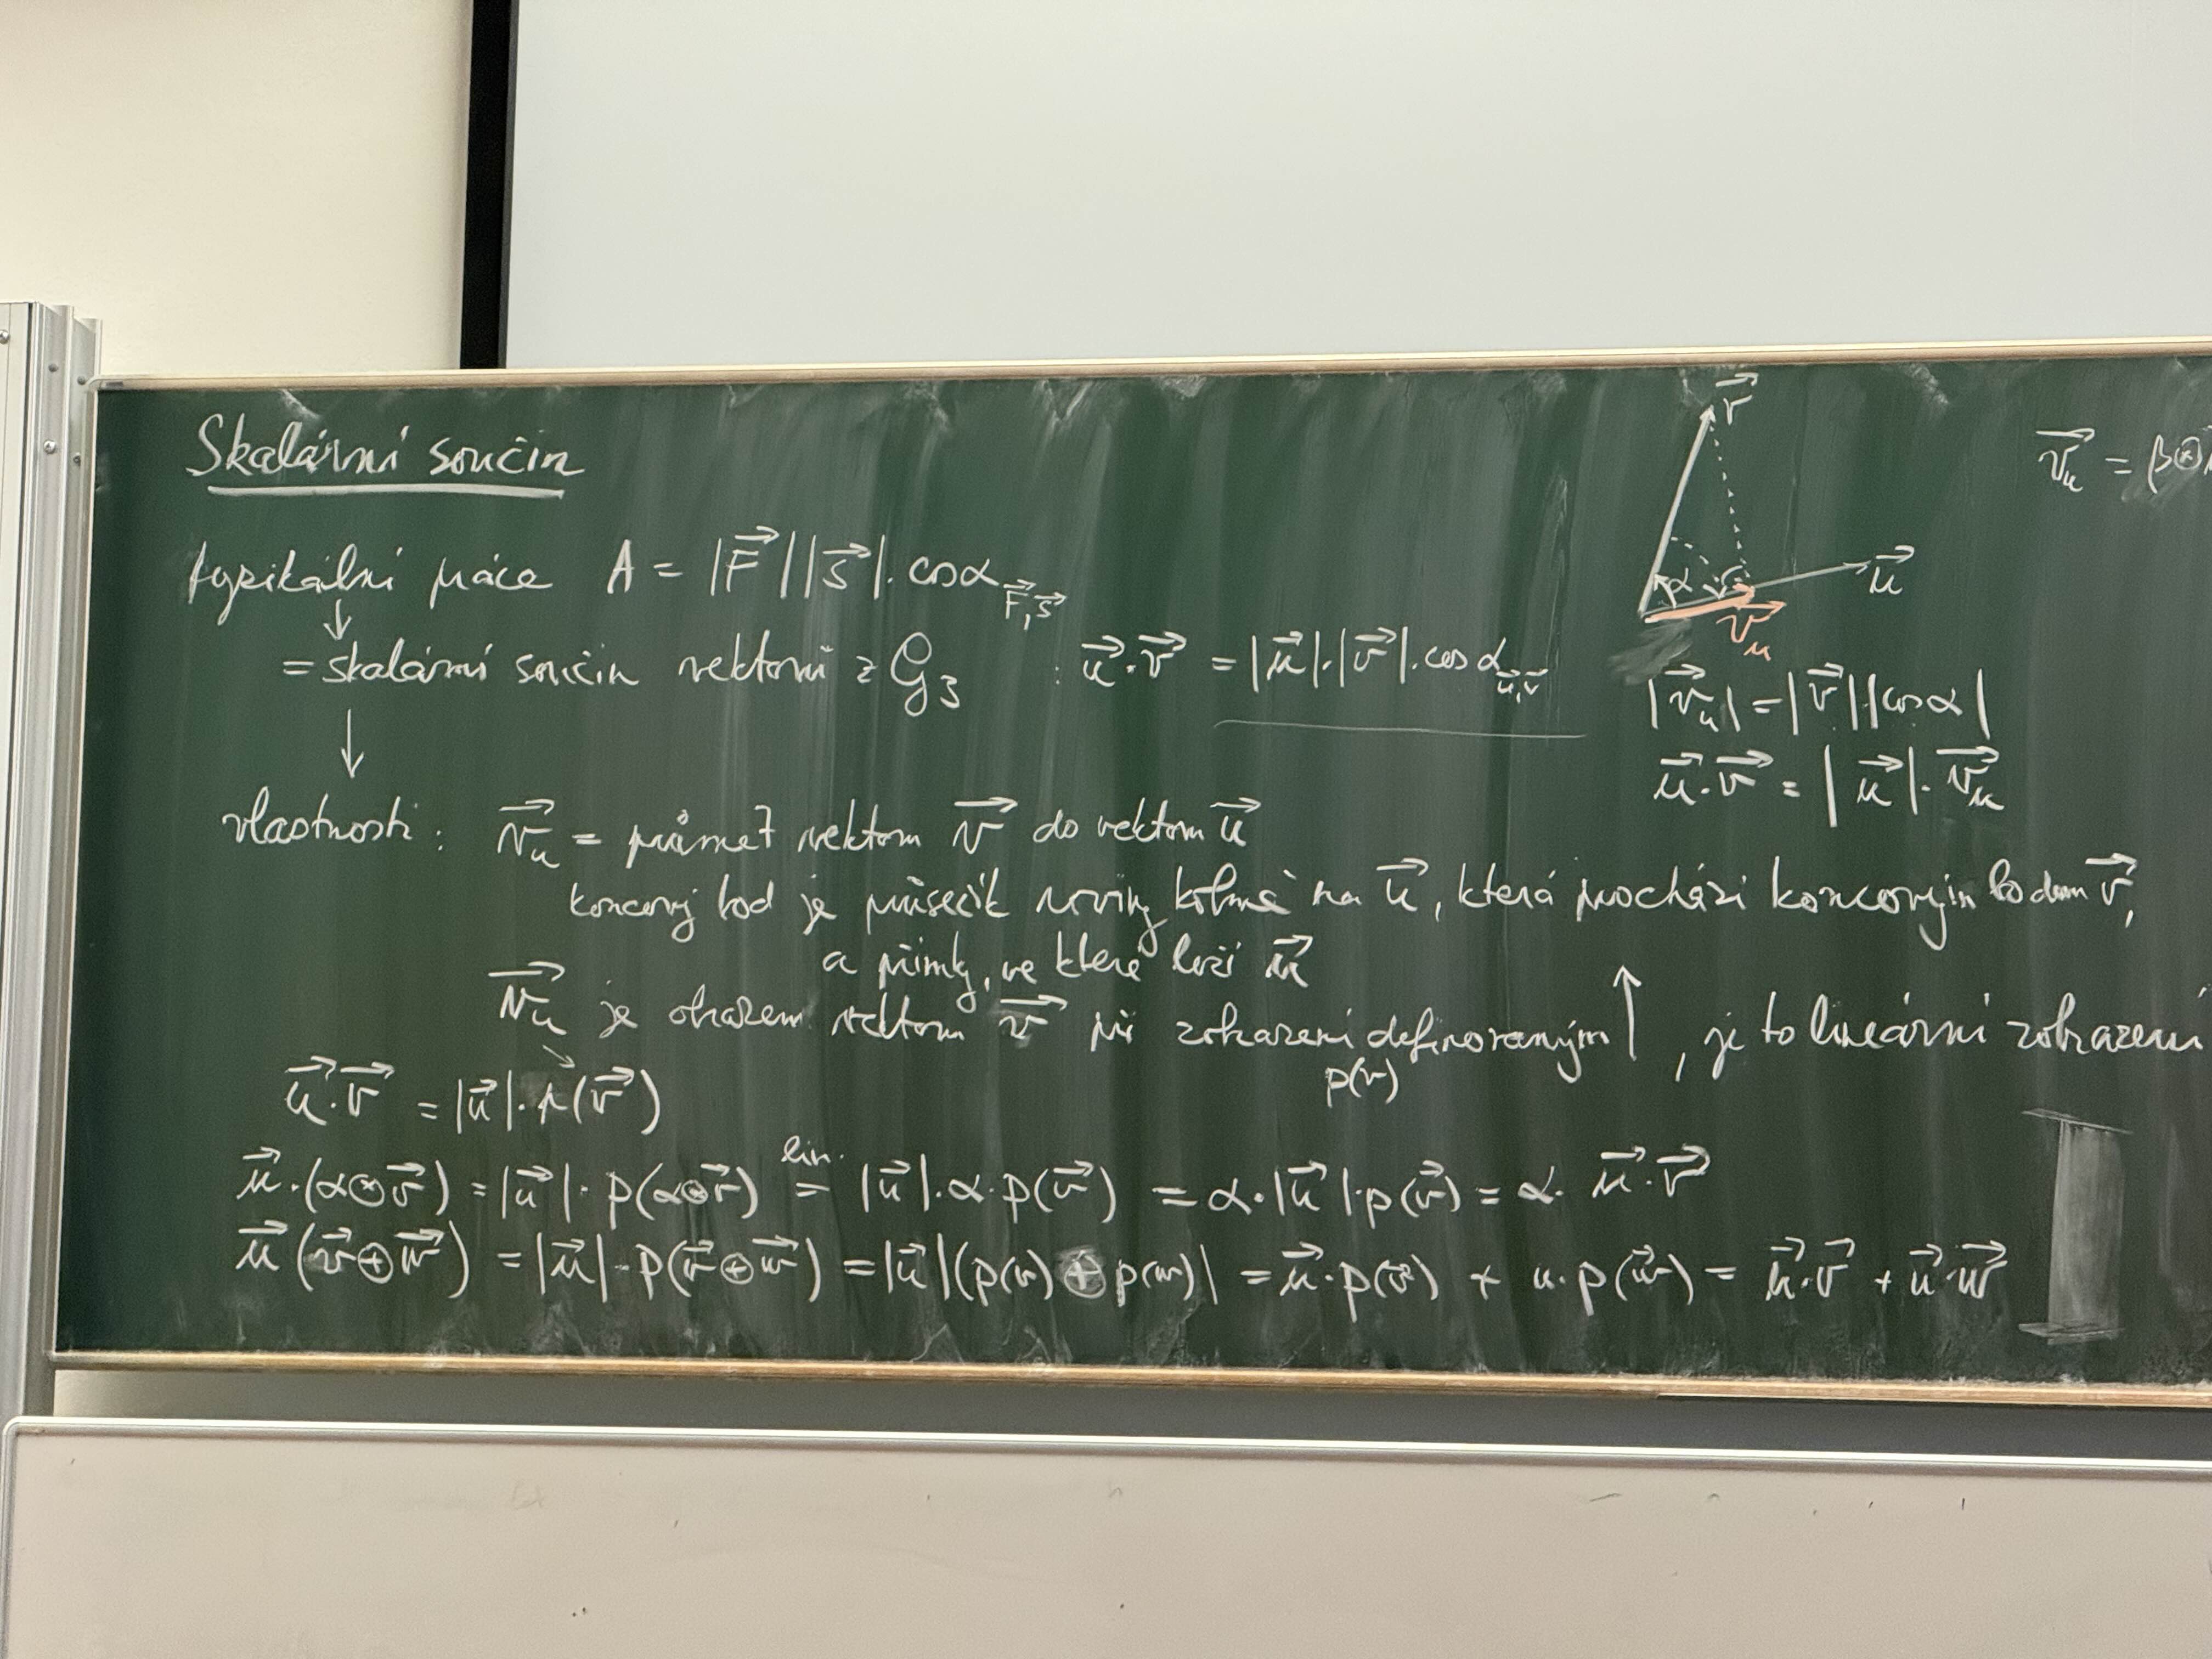 Skalární součin
fyzikální práce A = |F⃗||s⃗|. cosα F⃗,s⃗
↓
= skalární součin vektorů z G₃ : u⃗.v⃗ = |u⃗|.|v⃗|.cos α u⃗,v⃗
↓
vlastnosti: v⃗ᵤ = průmět vektoru v⃗ do vektoru u⃗
koncový bod je průsečík roviny kolmé na u⃗, která prochází koncovým bodem v⃗,
a přímky, ve které leží u⃗
v⃗ᵤ je obrazem vektoru v⃗ při zobrazení definovaným ↑, je to lineární zobrazení
p(v)
u⃗.v⃗ = |u⃗|.p(v⃗)
u⃗.(α⊙v⃗) = |u⃗|.p(α⊙v⃗) lin. = |u⃗|.α.p(v⃗) = α.|u⃗|.p(v⃗) = α. u⃗.v⃗
u⃗(v⃗⊕w⃗) = |u⃗|.p(v⃗⊕w⃗) = |u⃗|(p(v)⊕p(w)) = u⃗.p(v⃗) + u.p(w⃗) = u⃗.v⃗ + u⃗.w⃗
v⃗
α
u⃗
v⃗ᵤ
|v⃗ᵤ| = |v⃗||cosα|
u⃗.v⃗ = |u⃗|.v⃗ᵤ
v⃗ᵤ = β⊙